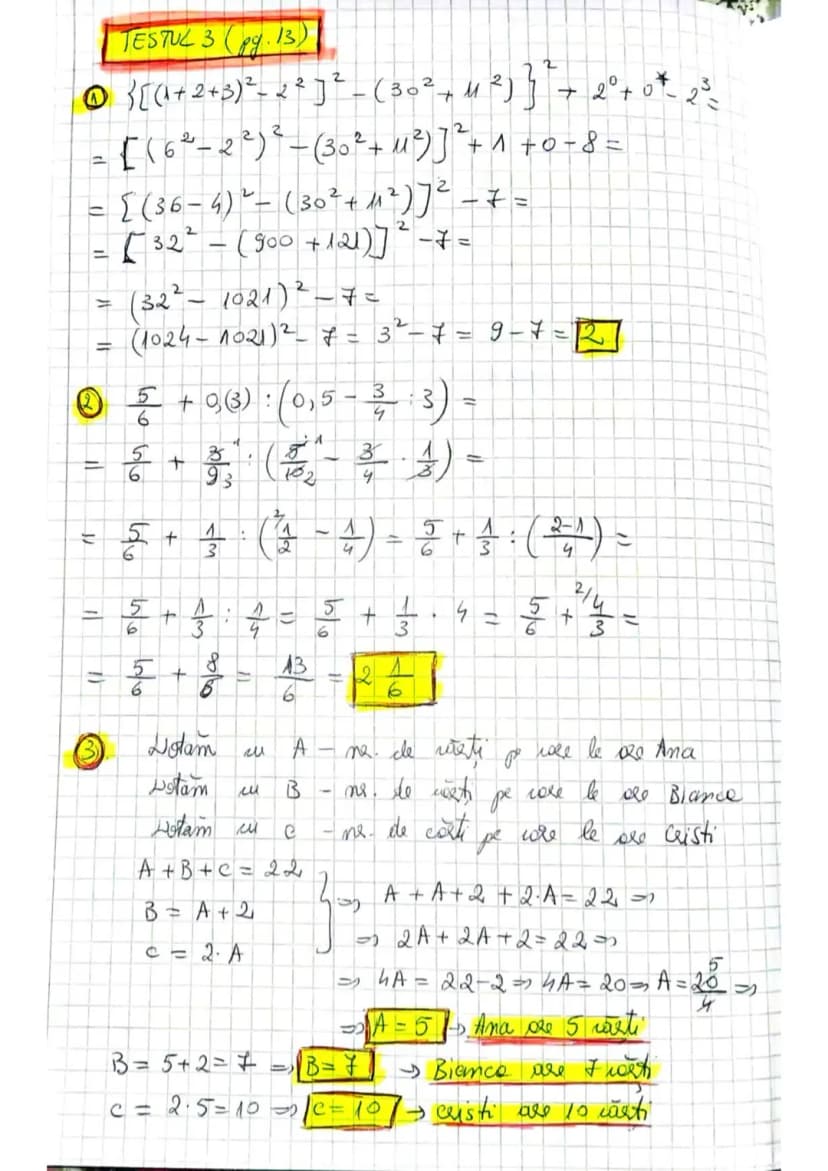 TESTUL 3 (pg. 13)
① {[(1+2+3)²-2²]² - (30² + 11²)}² + 2⁰ + 0⁴ - 2³ =
= [(6²-2²)² - (30² + 11²)]² + 1 + 0 - 8 =
= [(36-4)² - (30² + 11²)]² - 7 =
= [32² - (900 + 121)]² - 7 =
= (32² - 1021)² - 7 =
= (1024 - 1021)² - 7 = 3² - 7 = 9 - 7 = 2
② 5/6 + 0,(3) : (0,5 - 3/4 : 3) =
= 5/6 + 3/9 : (5/10 - 3/4 · 1/3) =
= 5/6 + 1/3 : (1/2 - 1/4) = 5/6 + 1/3 : (2-1/4) =
= 5/6 + 1/3 : 1/4 = 5/6 + 1/3 · 4 = 5/6 + 4/3 =
= 5/6 + 8/6 = 13/6 = 2 1/6
③ Notăm cu A - nr. de cărți pe care le are Ana
Notăm cu B - nr. de cărți pe care le are Bianca
Notăm cu C - nr. de cărți pe care le are Cristi
A + B + C = 22
B = A + 2
C = 2 · A
⇒ A + A + 2 + 2·A = 22 ⇒
⇒ 2A + 2A + 2 = 22 ⇒
⇒ 4A = 22 - 2 ⇒ 4A = 20 ⇒ A = 20/4 ⇒
⇒ A = 5 → Ana are 5 cărți
B = 5 + 2 = 7 ⇒ B = 7 → Bianca are 7 cărți
C = 2·5 = 10 ⇒ C = 10 → Cristi are 10 cărți